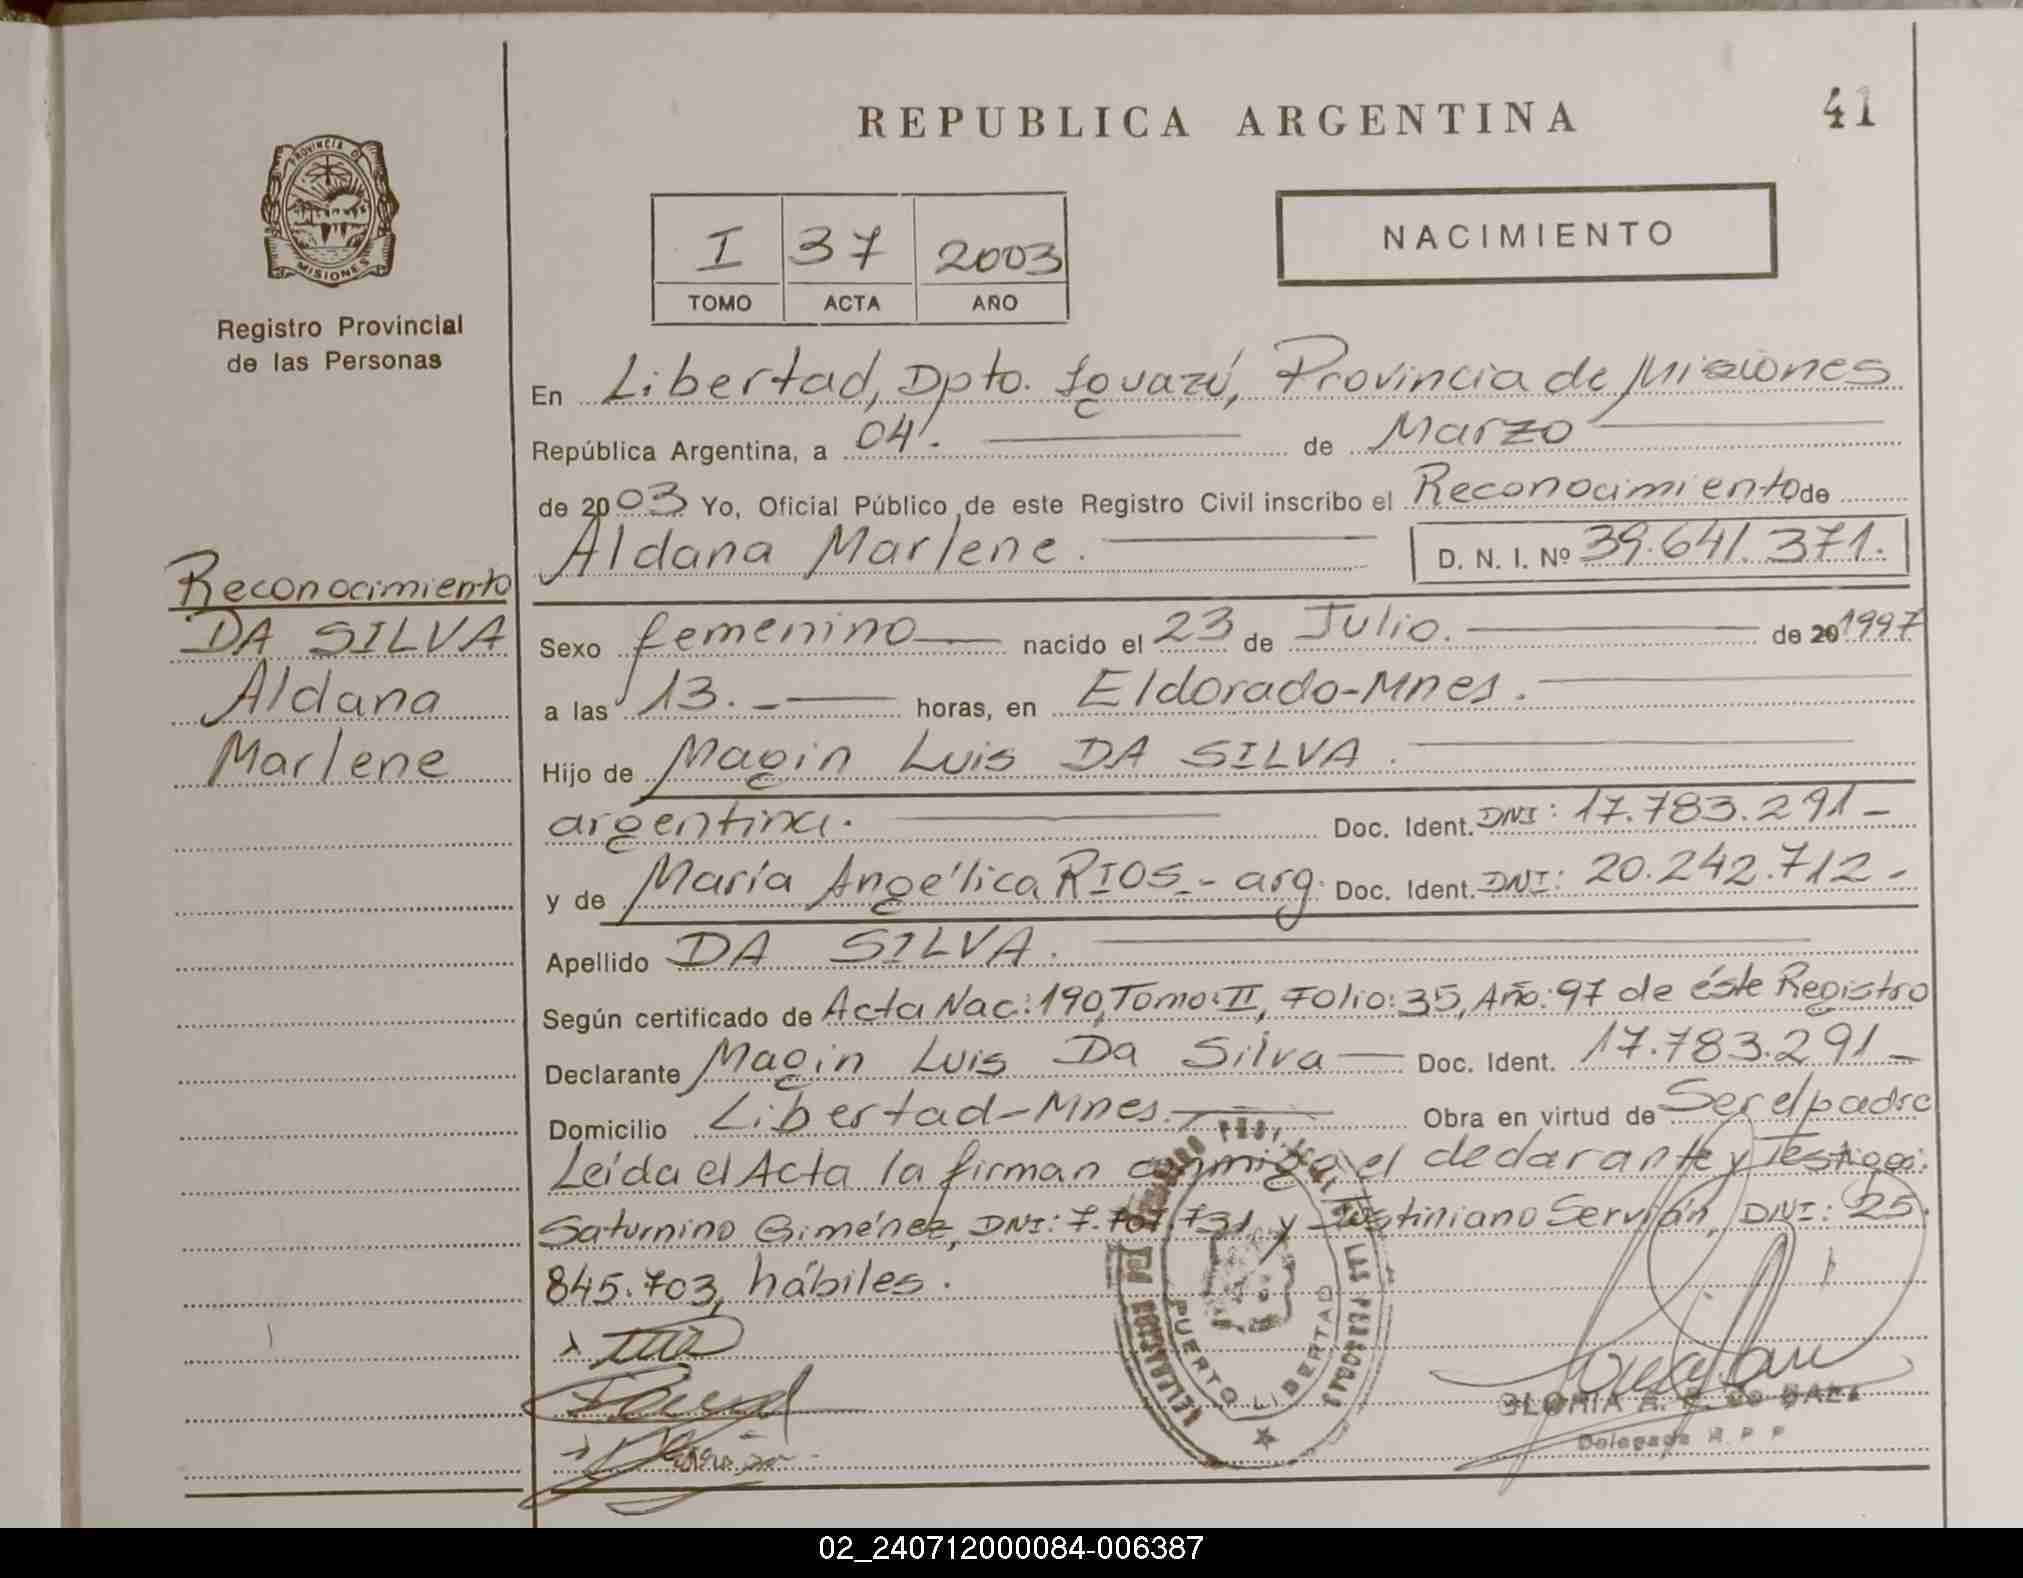 REPUBLICA ARGENTINA
41
PROVINCIA D
MISIONES
Registro Provincial
de las Personas
I 37 2003
TOMO ACTA AÑO
NACIMIENTO
En Libertad, Dpto. Iguazú, Provincia de Misiones
República Argentina, a 04. de Marzo
de 2003 Yo, Oficial Público de este Registro Civil inscribo el Reconocimiento de
Aldana Marlene. D. N. I. Nº 39.641.371.
Reconocimiento
DA SILVA
Aldana
Marlene
Sexo femenino nacido el 23 de Julio. de 20 1997
a las 13. horas, en Eldorado-Mnes.
Hijo de Magin Luis DA SILVA.
argentina. Doc. Ident. DNI: 17.783.291-
y de María Angélica RIOS.- arg. Doc. Ident. DNI: 20.242.712-
Apellido DA SILVA.
Según certificado de Acta Nac: 190, Tomo: II, Folio: 35, Año: 97 de éste Registro
Declarante Magin Luis Da Silva Doc. Ident. 17.783.291-
Domicilio Libertad-Mnes. Obra en virtud de Ser el padre
Leída el Acta la firman conmigo el declarante y Testigos:
Saturnino Giménez, DNI: 7.707.731 y Justiniano Servián, DNI: 25.
845.703, hábiles.
LAS PERSONAS
DELEGACION
PUERTO LIBERTAD
GLORIA
Delegada R P P
02_240712000084-006387